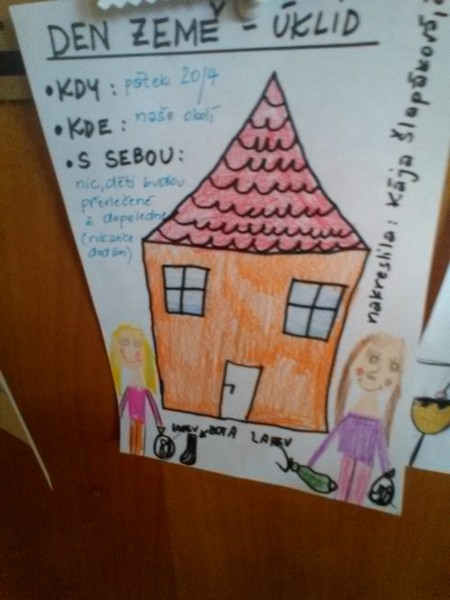 DEN ZEMĚ - ÚKLID
• KDY : pátek 20/4
• KDE : naše okolí
• S SEBOU:
nic, děti budou
převlečené
z dopoledne
(rukavice
dodám)
nakreslila: Kája Šlapáková,
BOTA
LAHEV